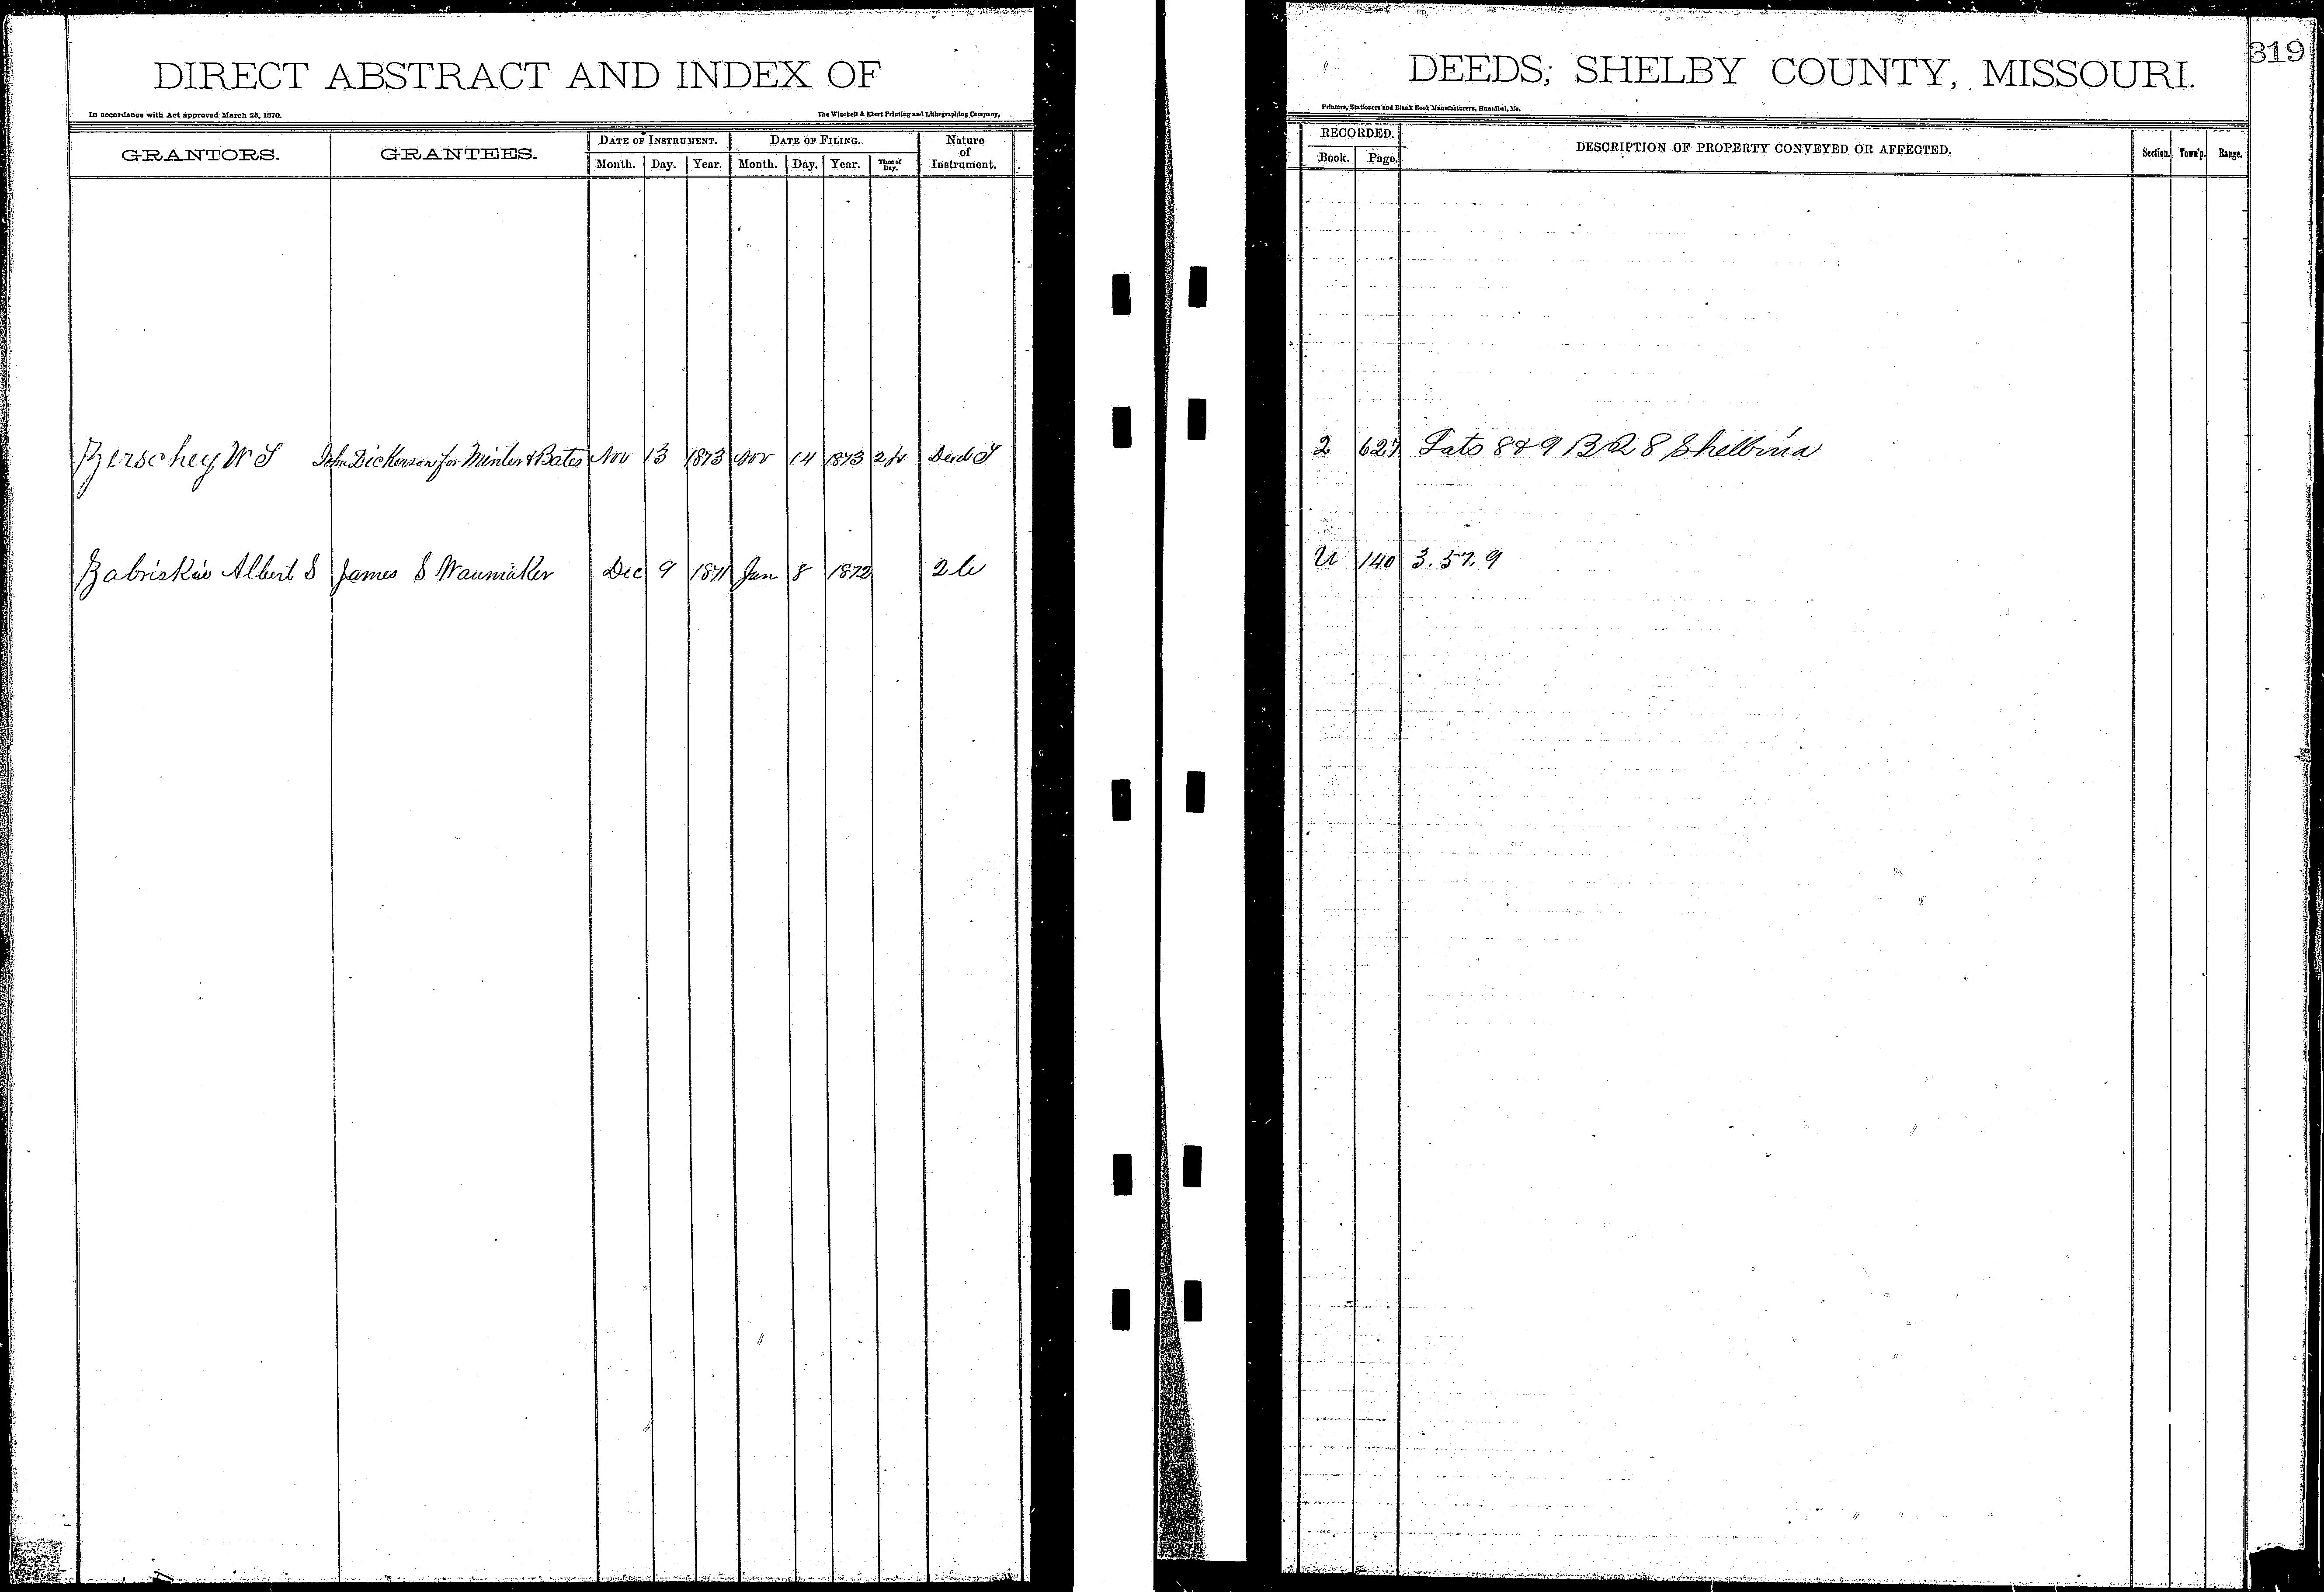 DIRECT ABSTRACT AND INDEX OF
In accordance with Act approved March 25, 1870.
The Winchell & Ebert Printing and Lithographing Company,
GRANTORS.
GRANTEES.
DATE OF INSTRUMENT.
DATE OF FILING.
Nature of Instrument.
Month. Day. Year. Month. Day. Year. Time of Day.
Zerschey W S John Dickenson for Minter & Bates Nov 13 1873 Nov 14 1873 Deed T
Zabriskie Albert S James S Waumaker Dec 9 1871 Jan 8 1872
319
DEEDS; SHELBY COUNTY, MISSOURI.
Printers, Stationers and Blank Book Manufacturers, Hannibal, Mo.
RECORDED.
Book. Page.
DESCRIPTION OF PROPERTY CONVEYED OR AFFECTED.
Section. Town'p. Range.
2 627 Lots 8 & 9 B 8 Shelbina
U 140 3. 57. 9